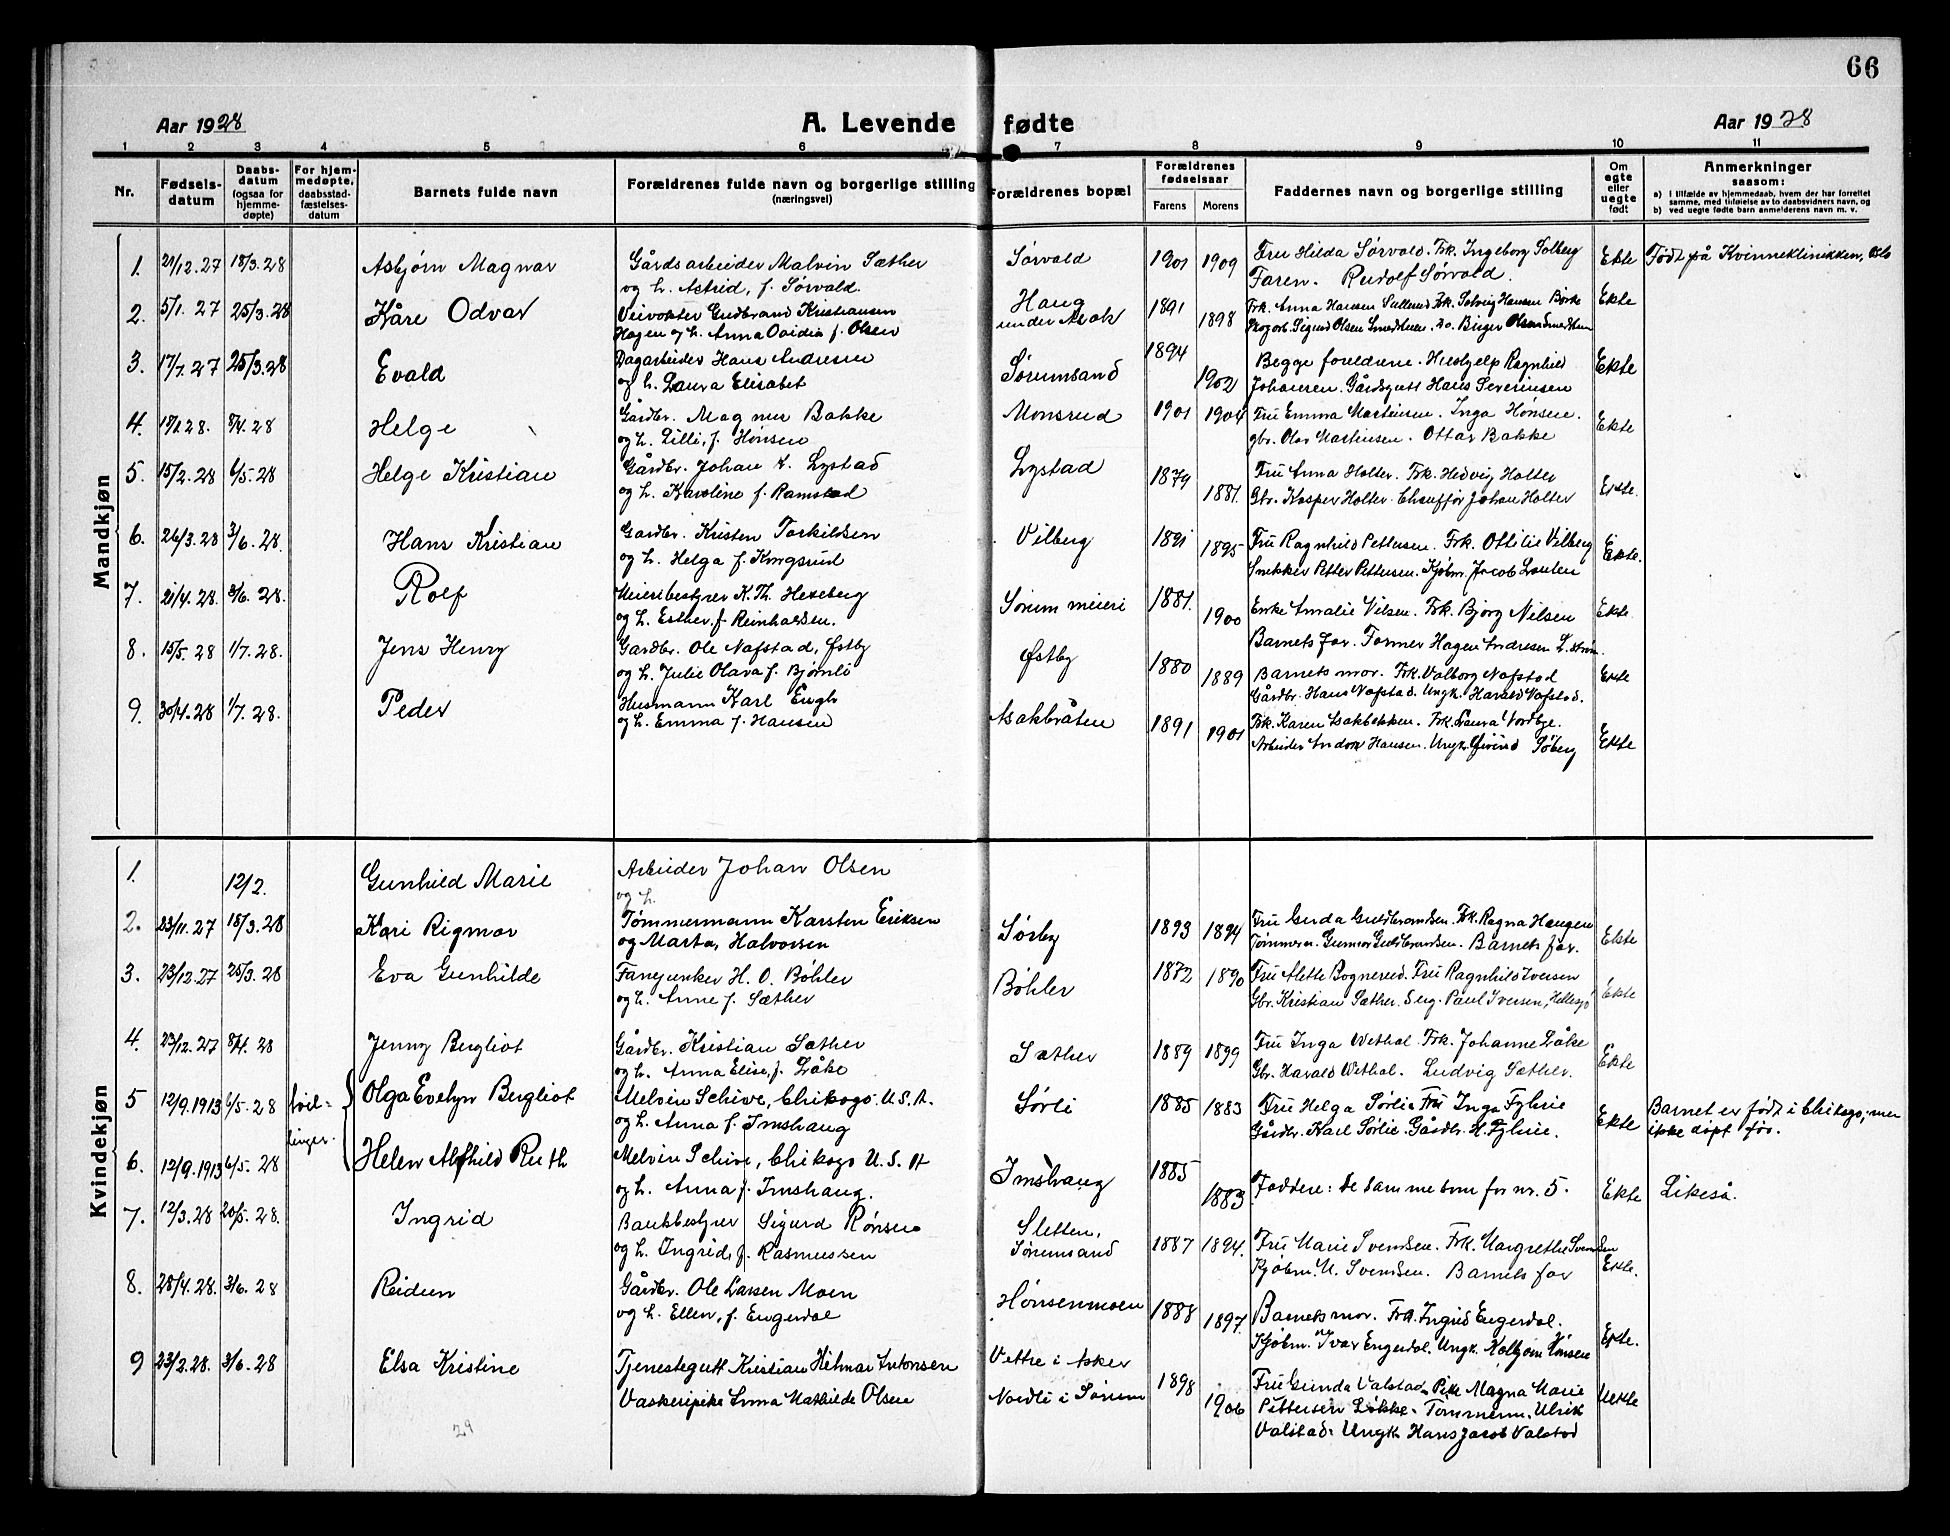 66
Aar 1928 A. Levende fødte Aar 1928
1 2 3 4 5 6 7 8 9 10 11
Nr.
Fødsels-
datum
Daabs-
datum
(ogsaa for
hjemme-
døpte)
For hjem-
medøpte,
daabsstad-
fæstelses-
datum
Barnets fulde navn
Forældrenes fulde navn og borgerlige stilling
(næringsvei)
Forældrenes bopæl
Forældrenes
fødselsaar
Farens Morens
Faddernes navn og borgerlige stilling
Om
egte
eller
uegte
født
Anmerkninger
saasom:
a) i tilfælde av hjemmedaab, hvem der har forrettet
samme, med tilføielse av to daabsvidners navn, og
b) ved uegte fødte barn anmelderens navn m. v.
Mandkjøn
1. 21/12.27 18/3.28 Asbjørn Magnar
Gårdsarbeider Malvin Sæther
og h. Astrid, f. Sørvald.
Sørvald 1901 1909
Fru Hilda Sørvald. Frk. Ingeborg Solberg
Faren. Rudolf Sørvald.
Ekte Født på Kvinneklinikken, Oslo
2. 5/1.27 25/3.28 Kåre Odvar
Veivokter Gudbrand Kristiansen
Hagen og h. Anna f. Olsen
Haug
under Asak
1891 1898
Frk. Anna Hansen Frk. Solveig Hansen
Sigurd Olsen Birger Olsen
Ekte
3. 17/7.27 25/3.28 Evald
Dagarbeider Hans Andresen
og h. Laura Elisabet
Sørumsand 1894 1902
Begge foreldrene. Ragnhild
Johansen. Gårdsgutt Hans Severinsen
Ekte
4. 28. 8/4.28 Helge
Gårdbr. Magnus Bakke
og h. Lilli, f. Hønsen
Monsrud 1901 1904
Fru Emma Martinsen. Inga Hønsen.
gbr. Olav Martinsen. Ottar Bakke
Ekte
5. 15/2.28 6/5.28 Helge Kristian
Gårdbr. Johan A. Lystad
og h. Karoline f. Ramstad
Lystad 1879 1881.
Fru Anna Holter. Frk. Hedvig Holter
Gbr. Kasper Holter. Chauffør Johan Holter
Ekte.
6. 26/3.28 3/6.28. Hans Kristian
Gårdbr. Kristen Torkildsen
og h. Helga f. Kongsrud
Vilberg 1891 1895
Fru Ragnhild Pettersen. Frk. Ottilie Vilberg
Snekker Petter Pettersen. Kjøbm. Jacob
Ekte.
7. 21/4.28. 3/6.28. Rolf
Meieribestyrer K. Th. Hexeberg
og h. Esther, f. Reinholdsen.
Sørum meieri 1881. 1900
Enke Amalie Nilsen. Frk. Bjørg Nilsen
Barnets far. Former Hagen Andresen
Ekte
8. 15/5.28 1/7.28. Jens Henry
Gårdbr. Ole Nafstad, Østby
og h. Julie Olava f. Bjørnli
Østby 1880 1889
Barnets mor. Frk. Valborg Nafstad
Gårdbr. Hans Nafstad. Ungk. Harald Nafstad.
Ekte
9. 30/4.28 1/7.28. Peder
Husmann Karl Engh
og h. Emma f. Hansen
Asakbråten 1891 1901
Frk. Karen Asakbekken. Frk. Laura Nordbye.
Arbeider Andor Hansen. Ungk. Øivind Søberg
Ekte
Kvindekjøn
1. 12/2. Gunhild Marie
Arbeider Johan Olsen
og h.
2. 23/11.27 18/3.28 Kari Rigmor
Tømmermann Karsten Eriksen
og Marta, Halvorsen
Sørby 1893 1894
Fru Gerda Guldbrandsen. Frk. Ragna Haugen
Tømmerm. Gunnar Guldbrandsen. Barnets far.
Ekte
3. 23/12.27 25/3.28 Eva Gunhilde
Fanejunker H. O. Bøhler
og h. Anne f. Sæther
Bøhler 1872 1890
Fru Alette Bognerud. Fru Ragnhild Iversen
Gbr. Kristian Sæther. Serg. Paul Iversen, Hellesjø
Ekte
4. 23/12.27 8/4.28 Jenny Bergliot
Gårdbr. Kristian Sæther
og h. Anna Elise, f. Låke
Sæther 1889 1899
Fru Inga Wethal. Frk. Johanne Låke
Gbr. Harald Wethal. Ludvig Sæther.
Ekte
5 12/9.1913 6/5.28 tvil-
linger. Olga Evelyn Bergliot
Melvin Schive, Chikago. U.S.A.
og h. Anna f. Imshaug
Sørli 1885 1883
Fru Helga Sørlie Fru Inga Fylrie
Gårdbr. Karl Sørlie. Gårdbr. H. Fylrie.
Ekte
Barnet er født i Chikago, men
ikke døpt før.
6. 12/9.1913 6/5.28 Helen Alfhild Ruth
Melvin Schive, Chikago U.S.A
og h. Anna f. Imshaug.
Imshaug 1885 1883
Faddere: De samme som for nr. 5.
Ekte Likeså.
7. 12/3.28 20/5.28. Ingrid
Bankbestyrer Sigurd Rønsen
og h. Ingrid, f. Rasmussen
Sletten,
Sørumsand
1887 1894.
Fru Marie Svendsen. Frk. Margrethe Svendsen
Kjøbm. M. Svendsen. Barnets far
Ekte.
8. 28/4.28. 3/6.28 Reidun
Gårdbr. Ole Larsen Moen
og h. Ellen, f. Engerdal
Hønsenmoen 1888 1897.
Barnets mor. Frk. Ingrid Engerdal.
Kjøbm. Ivar Engerdal. Ungk. Kolbjørn Hønsen
Ekte.
9 23/2.28. 3/6.28 Elsa Kristine
Tjenestegutt Kristian Hilmar Antonsen
Vaskeripike Anna Mathilde Olsen
Vettre i Asker
Nordli i Sørum
1898 1906
Fru Gunda Valstad. Pike Magna Marie
Pettersen Løkke. Tømmerm. Ulrik
Valstad. Ungk. Hans Jacob Valstad
Uekte
29